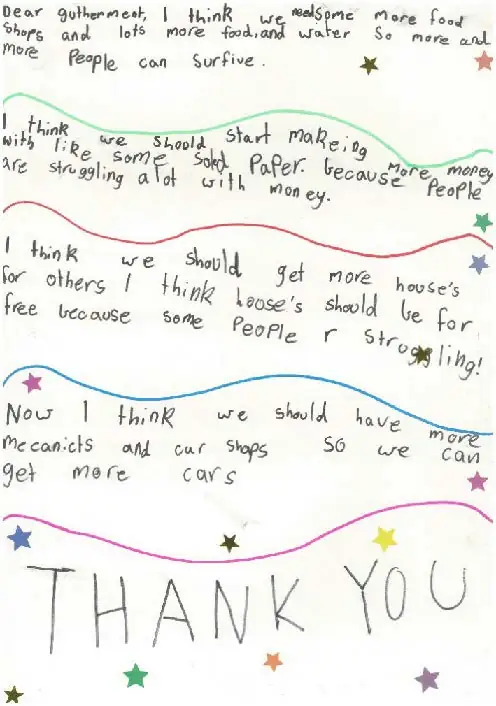 Dear guthermeot, I think we need some more food
shops and lots more food, and water so more and
more People can surfive.
I think we should start makeing more money
with like some solid Paper. because People
are struggling alot with money.
I think we should get more house's
for others I think hoose's should be for
free because some People r struggling!
Now I think we should have more
mecanicts and car shops so we can
get more cars
THANK YOU